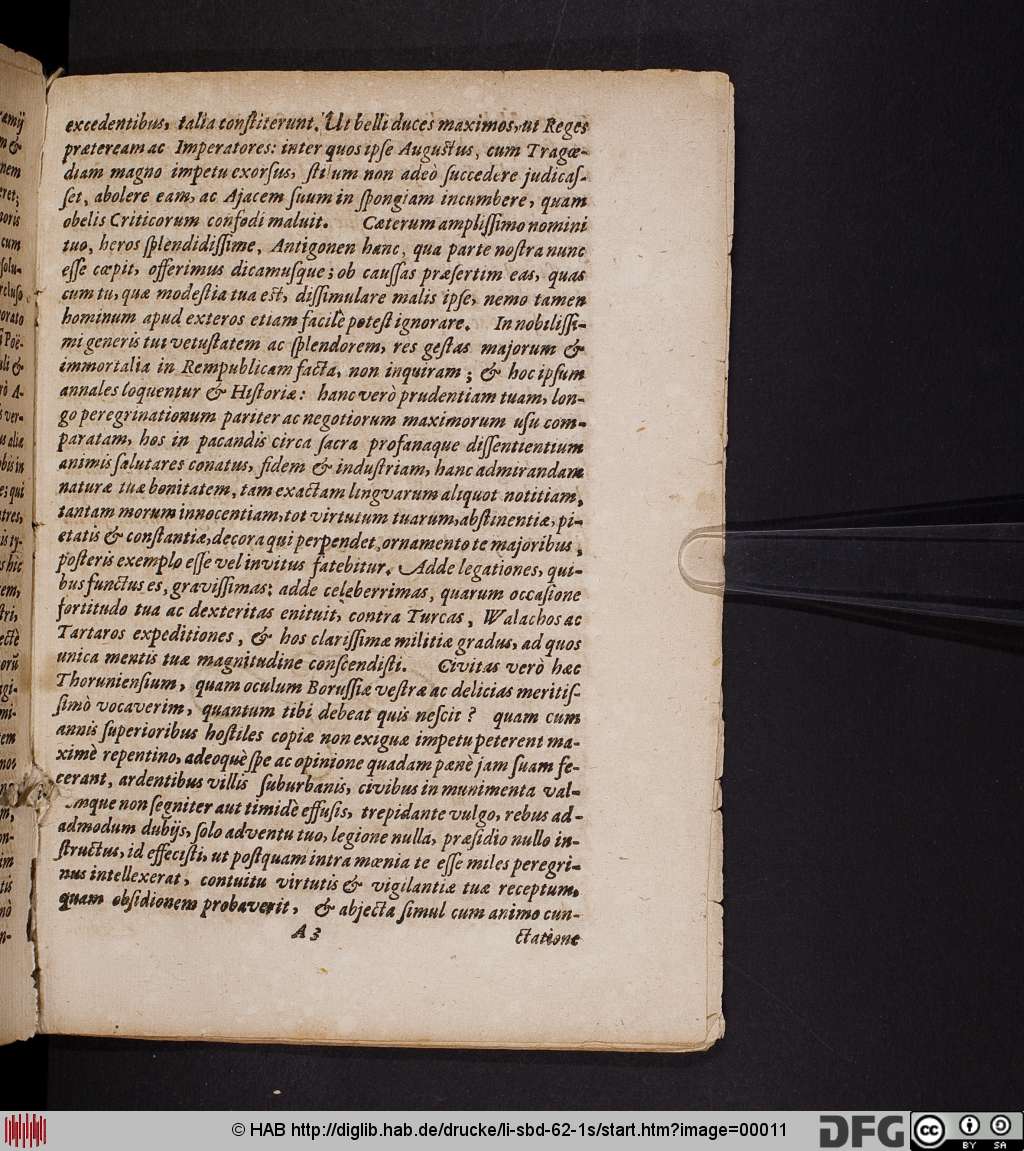 excedentibus, talia constiterunt. Ut belli duces maximos, ut Reges
prætereamac Imperatores: inter quos ipse Augustus, cum Tragœ-
diam magno impetu exorsus, stilum non adeò succedere judicas-
set, abolere eam, ac Ajacem suum in spongiam incumbere, quam
obelis Criticorum confodi maluit. Cæterum amplissimo nomini
tuo, heros splendidissime, Antigonen hanc, qua parte nostra nunc
esse cœpit, offerimus dicamusque; ob caussas præsertim eas, quas
cum tu, quæ modestia tua est, dissimulare malis ipse, nemo tamen
hominum apud exteros etiam facilè potest ignorare. In nobilissi-
mi generis tui vetustatem ac splendorem, res gestas majorum &
immortalia in Rempublicam facta, non inquiram; & hoc ipsum
annales loquentur & Historiæ: hanc verò prudentiam tuam, lon-
go peregrinationum pariter ac negotiorum maximorum usu com-
paratam, hos in pacandis circa sacra profanaque dissentientium
animis salutares conatus, fidem & industriam, hanc admirandam
naturæ tuæ bonitatem, tam exactam lingvarum aliquot notitiam,
tantam morum innocentiam, tot virtutum tuarum, abstinentiæ, pi-
etatis & constantiæ, decora qui perpendet, ornamento te majoribus,
posteris exemplo esse vel invitus fatebitur. Adde legationes, qui-
bus functus es, gravissimas; adde celeberrimas, quarum occasione
fortitudo tua ac dexteritas enituit, contra Turcas, Walachos ac
Tartaros expeditiones, & hos clarissimæ militiæ gradus, ad quos
unica mentis tuæ magnitudine conscendisti. Civitas verò hæc
Thoruniensium, quam oculum Borussiæ vestræ ac delicias meritis-
simò vocaverim, quantum tibi debeat quis nescit? quam cum
annis superioribus hostiles copiæ non exiguæ impetu peterent ma-
ximè repentino, adeoquè spe ac opinione quadam pænè jam suam fe-
cerant, ardentibus villis suburbanis, civibus in munimenta val-
umque non segniter aut timidè effusis, trepidante vulgo, rebus ad-
admodum dubijs, solo adventu tuo, legione nulla, præsidio nullo in-
structus, id effecisti, ut postquam intra mœnia te esse miles peregri-
nus intellexerat, contuitu virtutis & vigilantiæ tuæ receptum,
quam obsidionem probaverit, & abjecta simul cum animo cun-
A 3 ctatione
© HAB http://diglib.hab.de/drucke/li-sbd-62-1s/start.htm?image=00011
DFG
cc BY SA